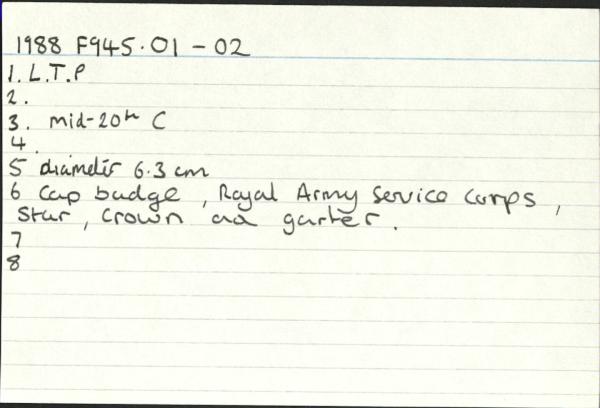 1988 F945.01 - 02
1. L.T.P
2.
3. mid-20th C
4.
5 diameter 6.3 cm
6 Cap badge, Royal Army Service Corps,
Star, Crown and garter.
7
8